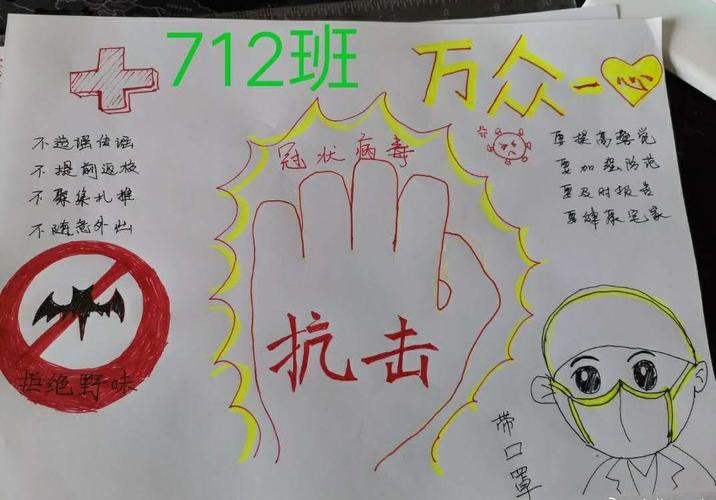 712班
万众一心
冠状病毒
不造谣传谣
不提前返校
不聚集扎推
不随意外
要提高警觉
要加强防范
要及时报告
要宅家
抗击
拒绝野味
带口罩